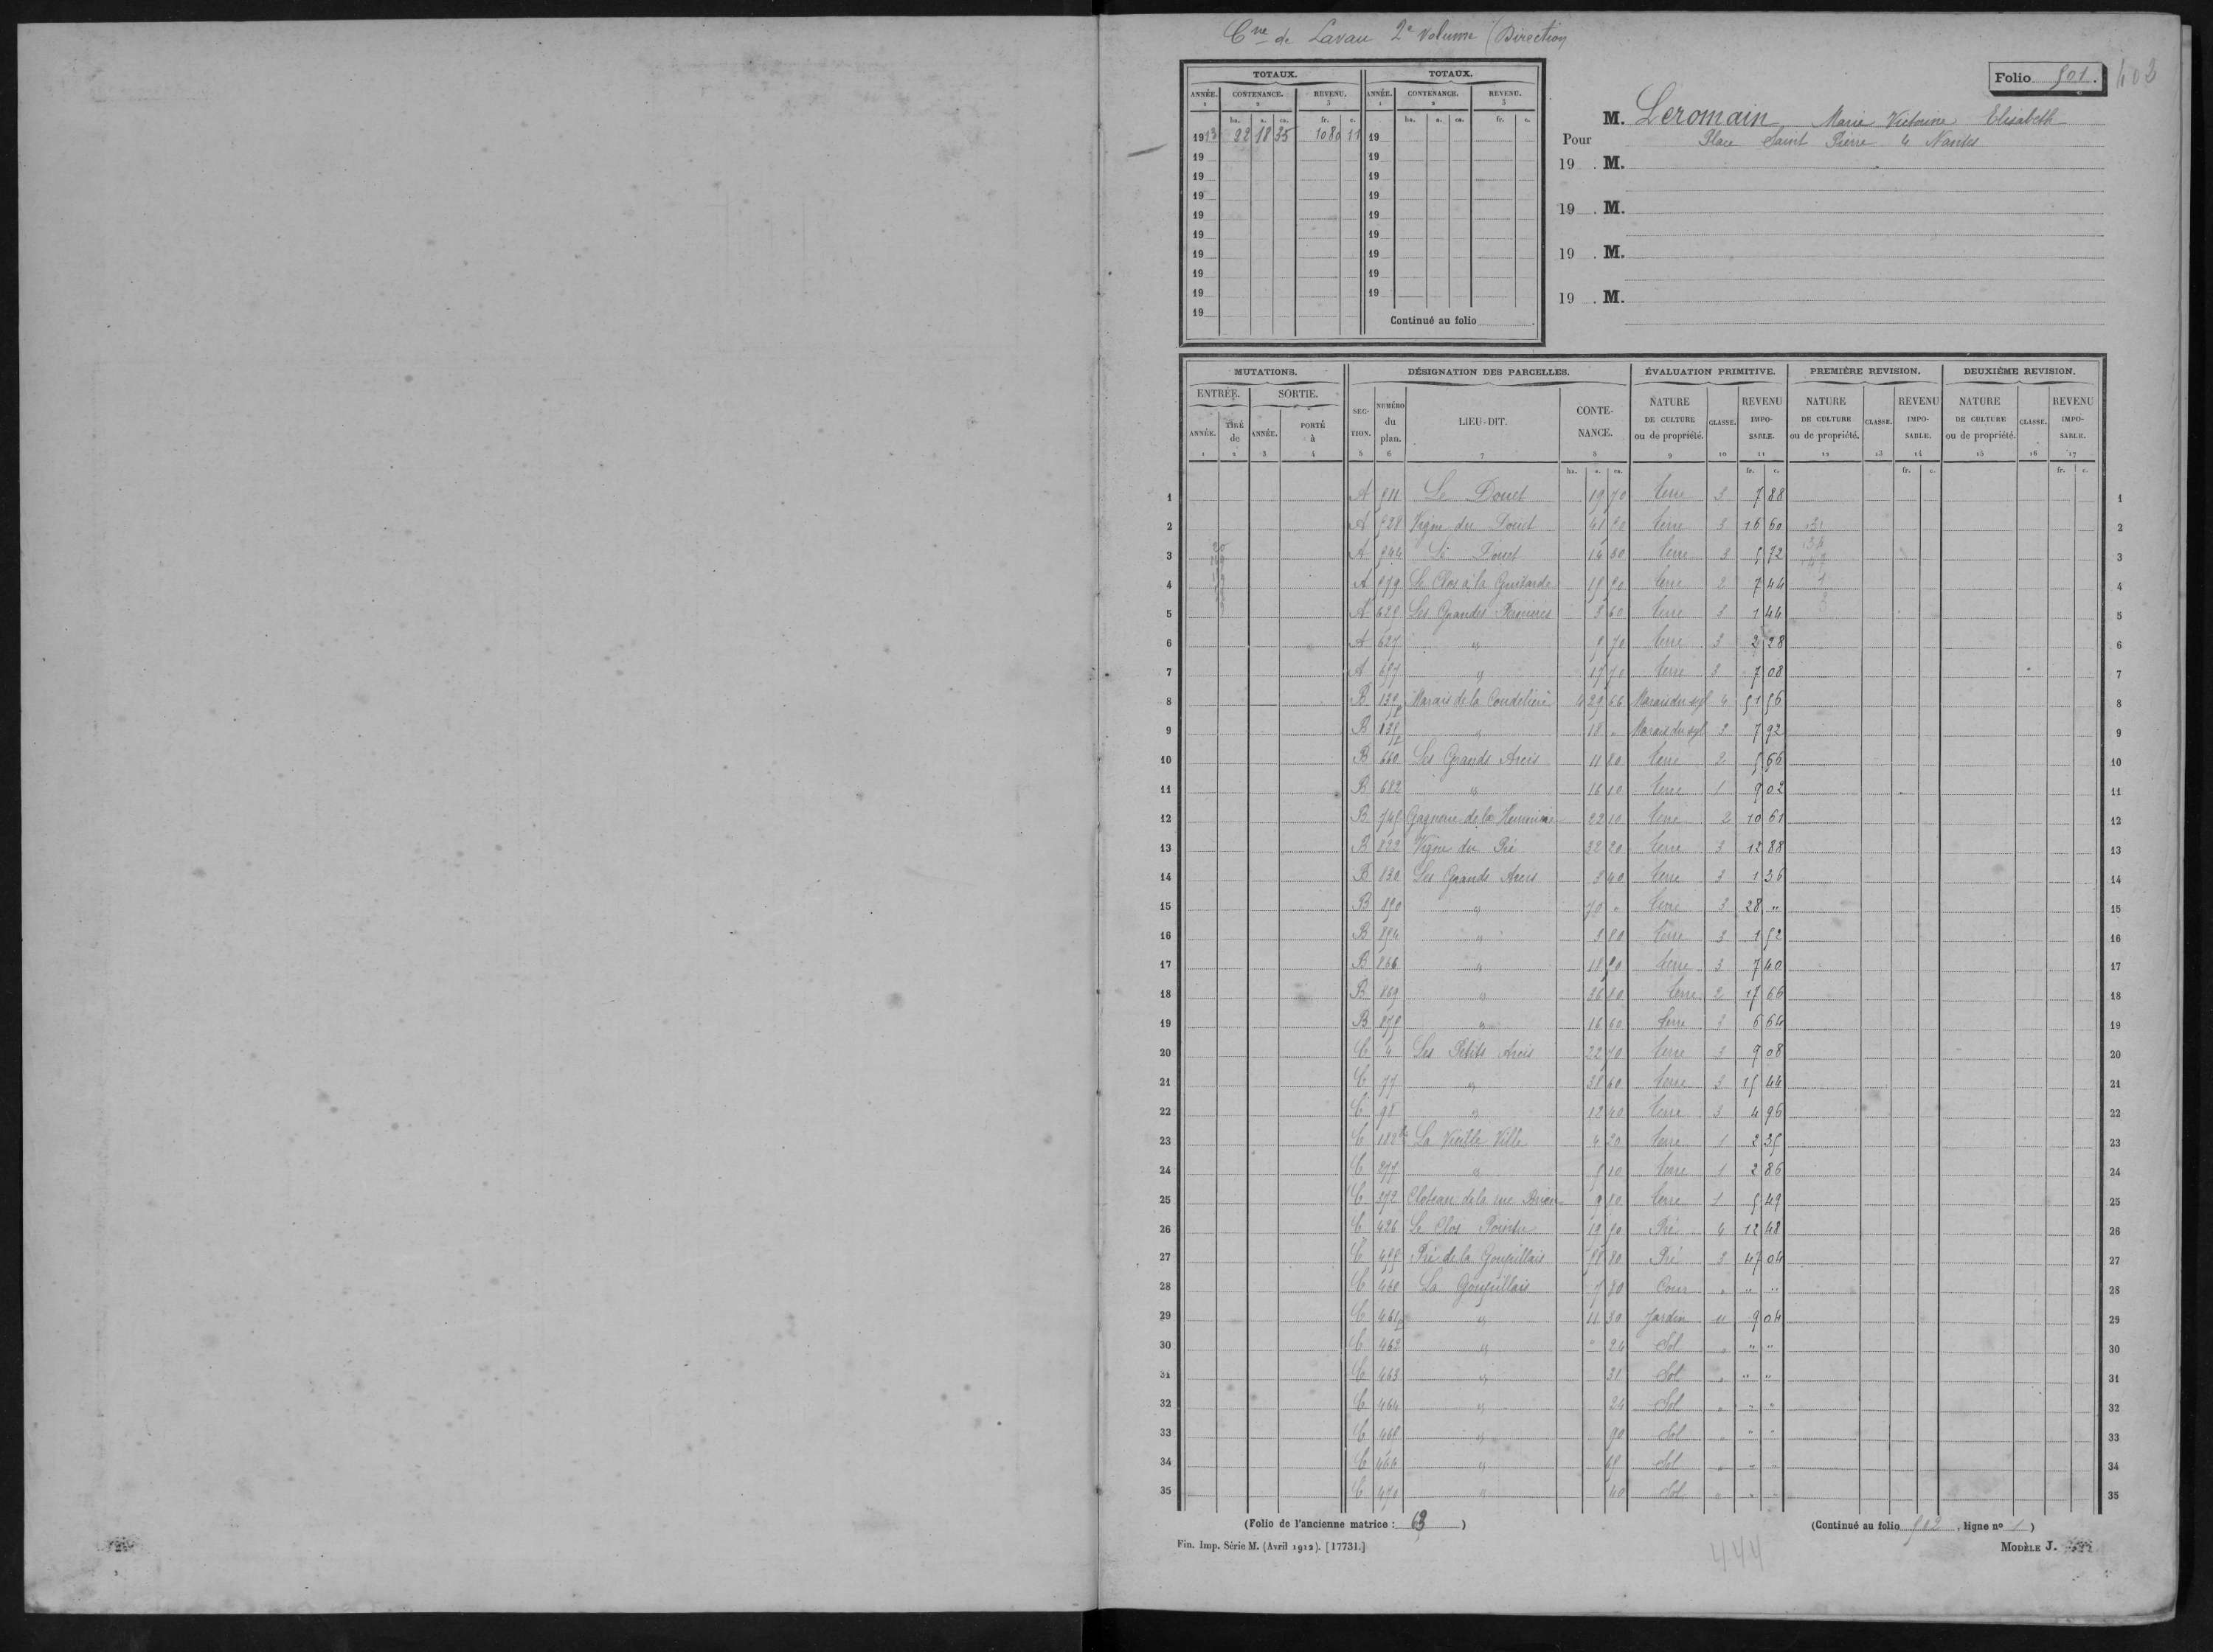 Cne de Lavau 2e Volume (Direction
Folio 501.
403
TOTAUX. TOTAUX.
ANNÉE. CONTENANCE. REVENU. ANNÉE. CONTENANCE. REVENU.
1 2 3 1 2 3
ha. a. ca. fr. c. ha. a. ca. fr. c.
1913 22 18 35 1080 11 19
19 19
19 19
19 19
19 19
19 19
19 19
19 19
19 19
19 Continué au folio
M. Leromain Marie Victorine Elisabeth
Pour Place Saint Pierre 4 Nantes
19 . M.
19 . M.
19 . M.
19 . M.
MUTATIONS. DÉSIGNATION DES PARCELLES. ÉVALUATION PRIMITIVE. PREMIÈRE REVISION. DEUXIÈME REVISION.
ENTRÉE. SORTIE. SECTION. NUMÉRO du plan. LIEU-DIT. CONTENANCE. NATURE DE CULTURE ou de propriété. CLASSE. REVENU IMPOSABLE. NATURE DE CULTURE ou de propriété. CLASSE. REVENU IMPOSABLE. NATURE DE CULTURE ou de propriété. CLASSE. REVENU IMPOSABLE.
ANNÉE. TIRÉ de ANNÉE. PORTÉ à
1 2 3 4 5 6 7 8 9 10 11 12 13 14 15 16 17
ha. a. ca. fr. c. fr. c. fr. c.
1 A 511 Le Douet 19 70 Terre 3 7 88 1
2 A 528 Vigne du Douet 41 50 Terre 3 16 60 2
3 A 544 Le Douet 14 30 Terre 3 5 72 3
4 A 579 Le Clos à la Guitarde 15 50 Terre 2 7 44 4
5 A 625 Les Grandes 3 60 Terre 3 1 44 5
6 A 627 " 5 70 Terre 3 2 28 6
7 A 697 " 17 70 Terre 3 7 08 7
8 B Marais de la 4 29 66 Marais du syl 4 51 56 8
9 B " 18 " Marais du syl 3 7 92 9
10 B 660 Les Grands Arcis 11 80 Terre 2 5 66 10
11 B 682 " 16 10 Terre 1 9 02 11
12 B 745 de la 22 10 Terre 2 10 61 12
13 B 822 Vigne du Pré 32 20 Terre 3 12 88 13
14 B 830 Les Grands Arcis 3 40 Terre 3 1 36 14
15 B 850 " 70 " Terre 3 28 " 15
16 B 854 " 3 80 Terre 3 1 52 16
17 B 866 " 18 50 Terre 3 7 40 17
18 B 869 " 36 80 Terre 2 17 66 18
19 B 875 " 16 60 Terre 3 6 64 19
20 C 4 Les Petits Arcis 22 70 Terre 3 9 08 20
21 C 77 " 38 60 Terre 3 15 44 21
22 C 98 " 12 40 Terre 3 4 96 22
23 C La Vieille Ville 4 20 Terre 1 2 35 23
24 C 277 " 5 10 Terre 1 2 86 24
25 C 372 Cloteau de la rue 9 80 Terre 1 5 49 25
26 C 426 Le Clos Pointu Pré 4 12 48 26
27 C 455 Pré de la Goupillais 58 80 Pré 3 47 04 27
28 C 460 La Goupillais 7 80 Cour " " " 28
29 C 461p " 11 30 Jardin u 9 04 29
30 C 462 " " 24 Sol " " " 30
31 C 463 " 31 Sol " " " 31
32 C 464 " 24 Sol " " " 32
33 C 465 " 90 Sol " " " 33
34 C 466 " Sol " " " 34
35 C 470 " 40 Sol " " " 35
(Folio de l'ancienne matrice : 63 ) (Continué au folio 502 , ligne no 1 )
Fin. Imp. Série M. (Avril 1912). [17731.] 444 MODÈLE J.